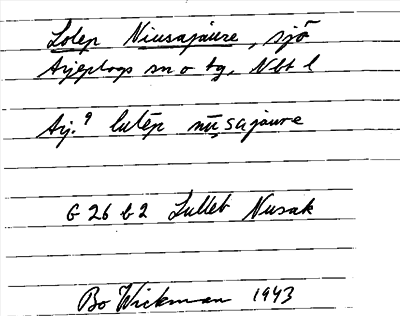 Lolep Niusajaure, sjö
Arjeplogs sn o tg, Nbt l
Arj.⁹ lulēp nīu̯sajaure
G 26 b 2 Lulleb Nusak
Bo Wickman 1943